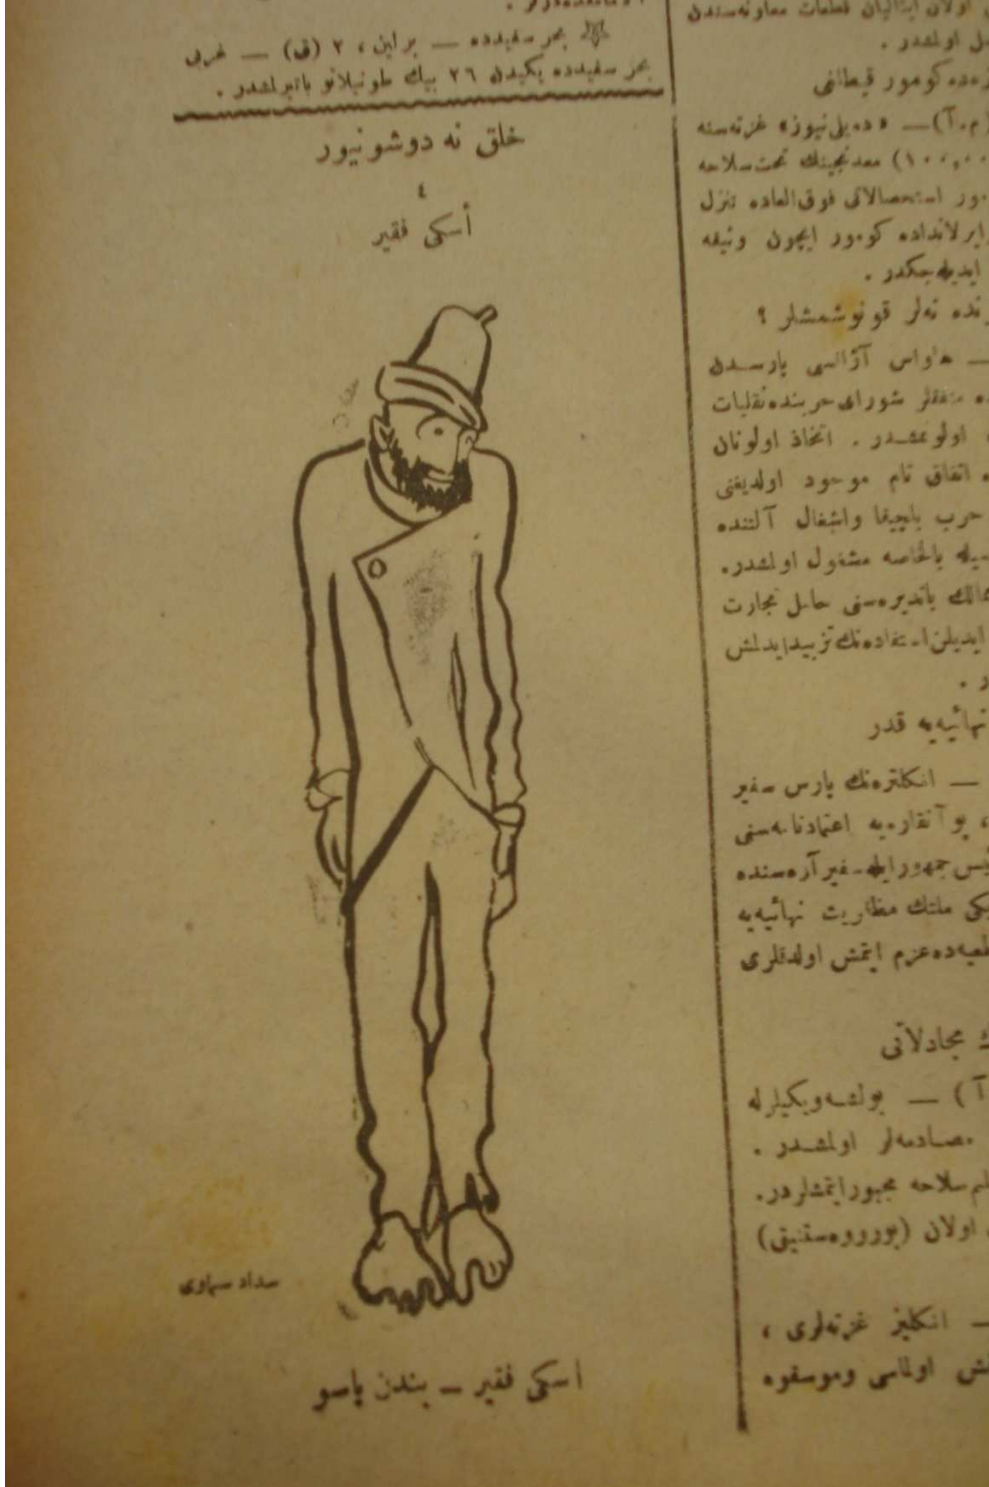 بحر سفیدده — برلین، ٢ (ق) — غربی
بحر سفیدده یکیدن ٢٦ بیك طونیلاتو باتیرلمشدر .
خلق نه دوشونیور
٤
أسکی فقیر
سداد سماوی
اسکی فقیر — بندن پاسو
اولان ایتالیان قطعات معاونه‌سندن
اولمشدر .
کومور قیطلغی
(م.آ)— «ده‌یلی نیوز» غزته‌سنه
معدنجینك تحت سلاحه
استحصالاتی فوق‌العاده تنزل
ایرلانداده کومور ایچون وثیقه
ایدیله‌جکدر .
نه‌لر قونوشمشلر ؟
— هاواس آژانسی پارسدن
متفقلر شورای حربنده نقلیات
اولونمشدر . اتخاذ اولونان
اتفاق تام موجود اولدیغنی
حرب یاپیچیما واشغال آلتنده
بالخاصه مشغول اولمشدر.
باندیره‌سنی حامل تجارت
ایدیلن استفاده‌نك تزییدایدلمش
نهائیه‌یه قدر
— انکلتره‌نك پارس سفیر
بوآنقاره‌یه اعتمادنامه‌سنی
جمهورایله سفیرآره‌سنده
ملتك مظفریت نهائیه‌یه
عزم ایتمش اولدقلری
مجادلاتی
آ) — بولشه‌ویکیلرله
مصادمه‌لر اولمشدر .
سلاحه مجبورایتمشلردر.
اولان
— انکلیز غزته‌لری ،
اولماسی وموسقوه